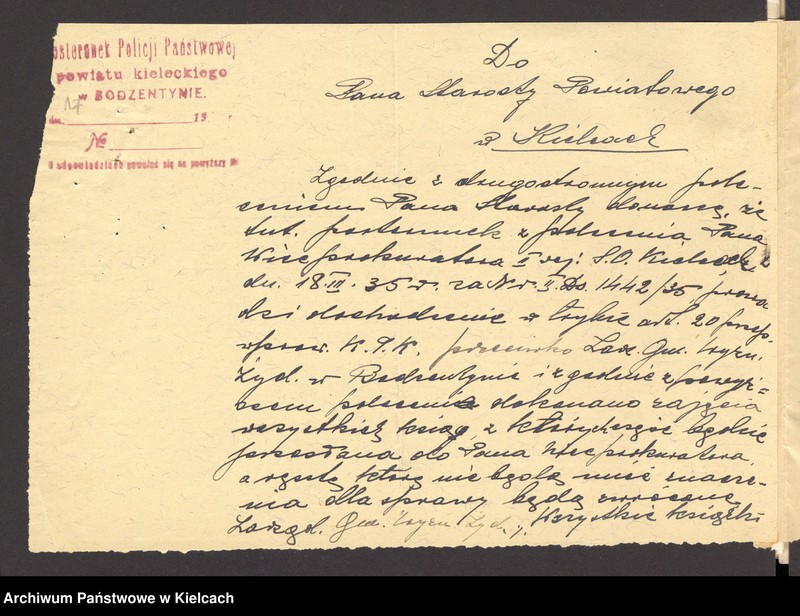 osterunek Policji Państwowej
powiatu kieleckiego
w BODZENTYNIE.
17
dn. 19
№
odpowiedziach powołać się na powyższy №
Do
Pana Starosty Powiatowego
w Kielcach
Zgodnie z drugostronnym pole-
ceniem Pana Starosty donoszę, że
tut. posterunek z polecenia Pana
Wiceprokuratora I rej. S.O. Kielcach z
dn. 18.III.35 r. za Nr. II. Ds. 1442/35 prowa
dzi dochodzenie w trybie art. 20 przep.
wprow. K.P.K. przeciwko Zarz. Gm. Wyzn.
Żyd. w Bodzentynie i zgodnie z powyż-
szem poleceniem dokonano zajęcia
wszystkich ksiąg, z których część będzie
przesłana do Pana Wiceprokuratora,
a resztę które nie będą mieć znacze-
nia dla sprawy będą zwrócone
Zarząd. Gm. Wyzn. Żyd. Wszystkie książki
Archiwum Państwowe w Kielcach